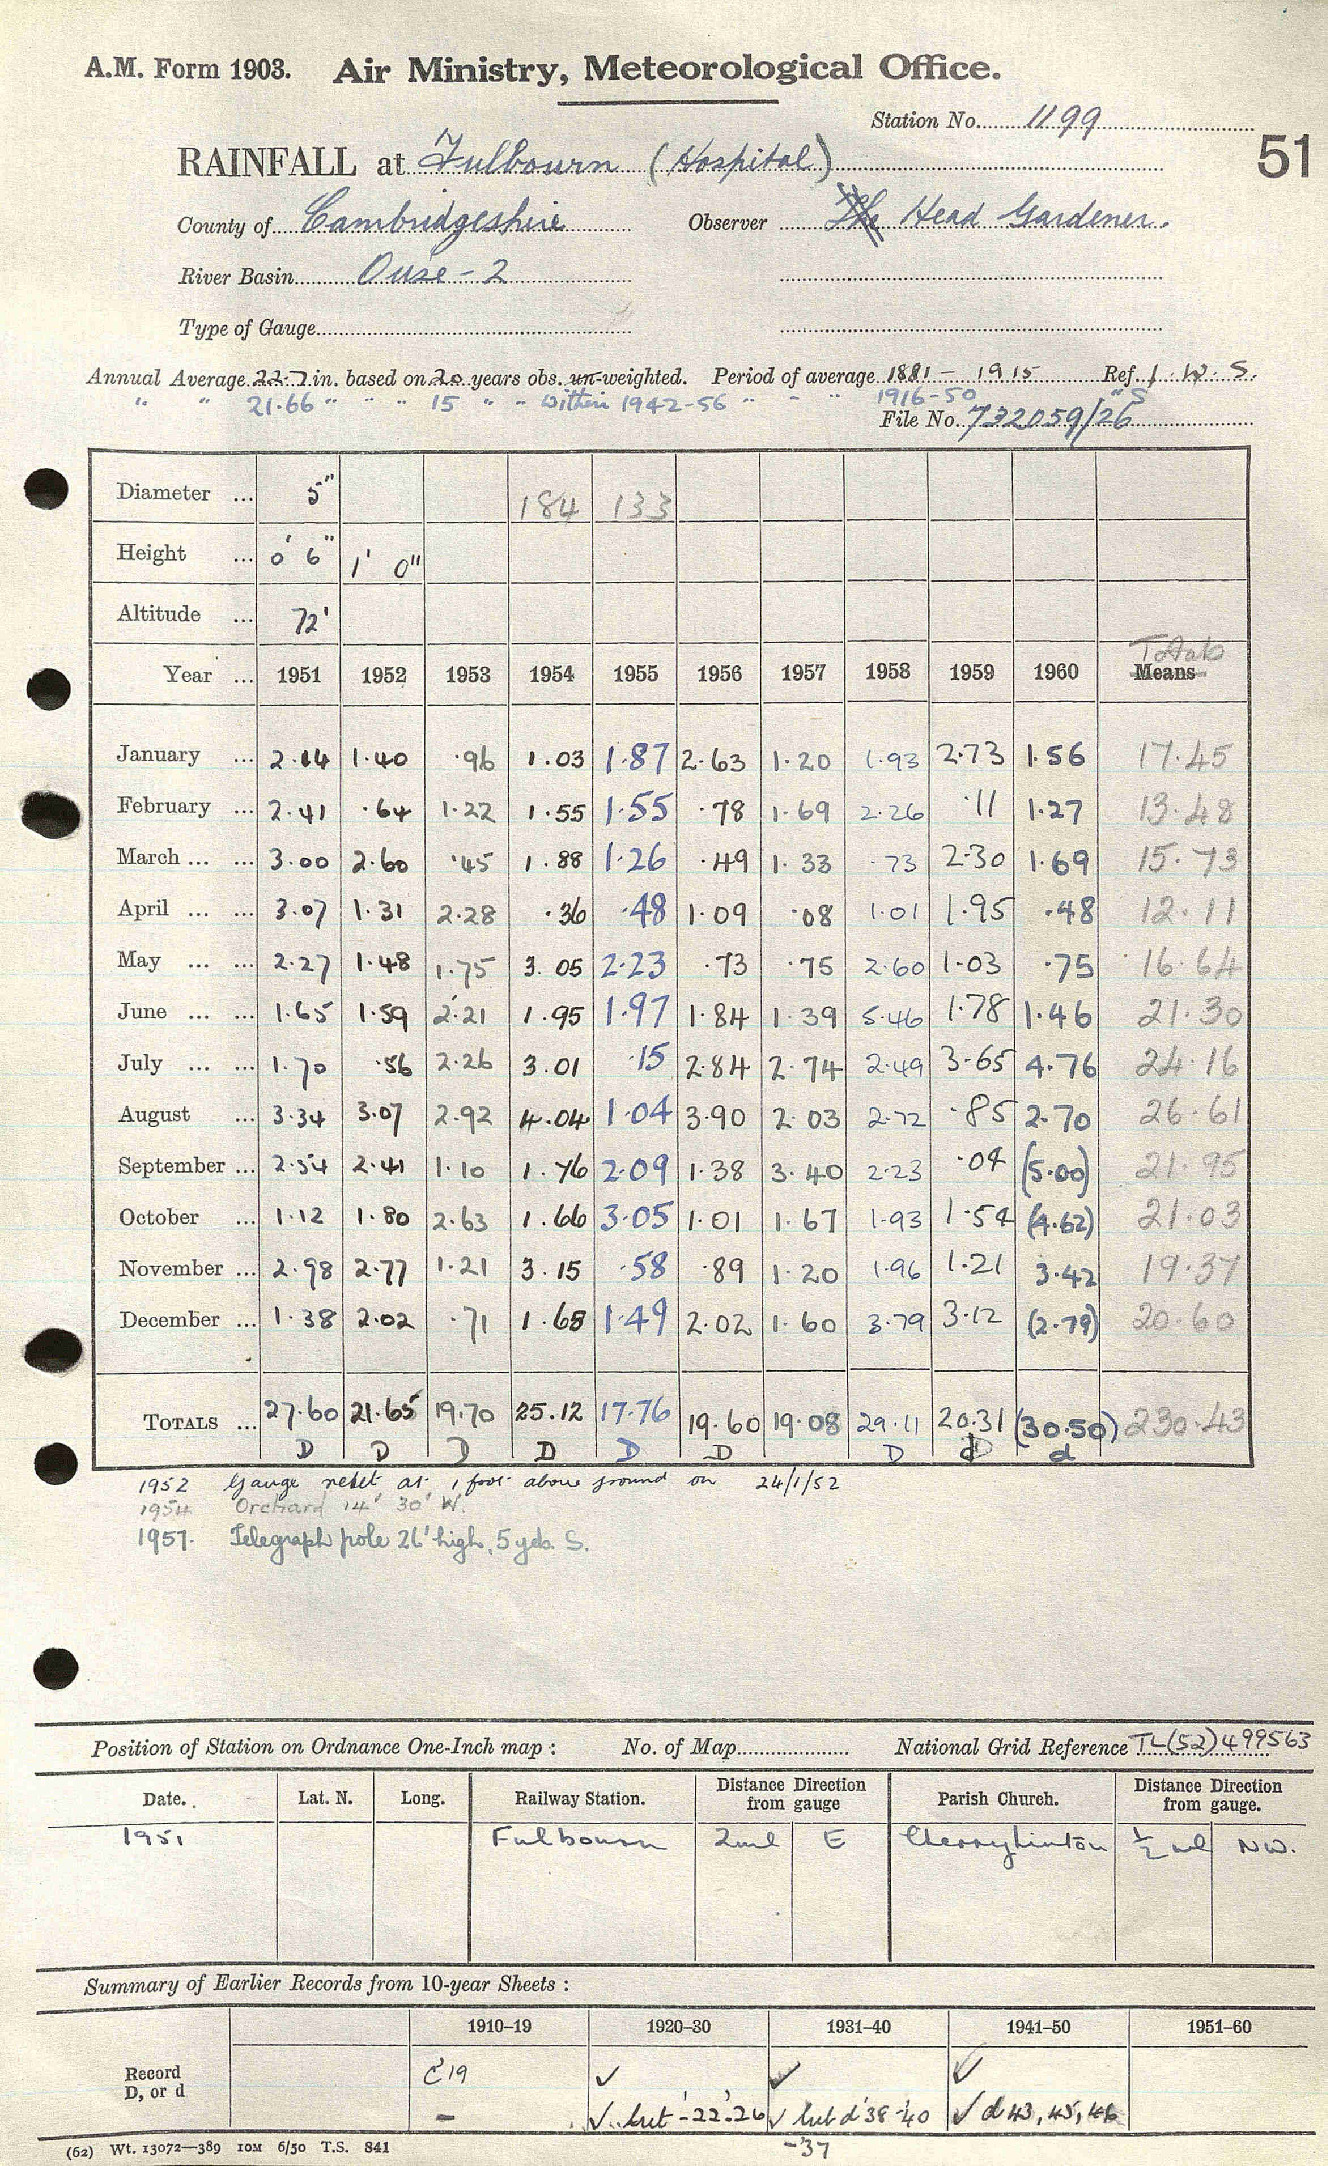 A.M. Form 1903. Air Ministry, Meteorological Office.
Station No. 1199
51
RAINFALL at Fulbourn (Hospital)
County of Cambridgeshire Observer The Head Gardener.
River Basin Ouse - 2
Type of Gauge
Annual Average 22.7 in. based on 20 years obs. un-weighted. Period of average 1881 - 1915 Ref. I. W. S.
" " 21.66 " " " 15 " " Within 1942-56 " - " 1916-50 " S
File No. 732059/26
Diameter ... 5" 184 133
Height ... 0' 6" 1' 0"
Altitude ... 72'
Totals
Year ... 1951 1952 1953 1954 1955 1956 1957 1958 1959 1960 Means
January ... 2.14 1.40 .96 1.03 1.87 2.63 1.20 1.93 2.73 1.56 17.45
February ... 2.41 .64 1.22 1.55 1.55 .78 1.69 2.26 .11 1.27 13.48
March ... ... 3.00 2.60 .45 1.88 1.26 .49 1.33 .73 2.30 1.69 15.73
April ... ... 3.07 1.31 2.28 .36 .48 1.09 .08 1.01 1.95 .48 12.11
May ... ... 2.27 1.48 1.75 3.05 2.23 .73 .75 2.60 1.03 .75 16.64
June ... ... 1.65 1.59 2.21 1.95 1.97 1.84 1.39 5.46 1.78 1.46 21.30
July ... ... 1.70 .56 2.26 3.01 .15 2.84 2.74 2.49 3.65 4.76 24.16
August ... 3.34 3.07 2.92 4.04 1.04 3.90 2.03 2.72 .85 2.70 26.61
September ... 2.54 2.41 1.10 1.76 2.09 1.38 3.40 2.23 .04 (5.00) 21.95
October ... 1.12 1.80 2.63 1.66 3.05 1.01 1.67 1.93 1.54 (4.62) 21.03
November ... 2.98 2.77 1.21 3.15 .58 .89 1.20 1.96 1.21 3.42 19.37
December ... 1.38 2.02 .71 1.68 1.49 2.02 1.60 3.79 3.12 (2.79) 20.60
TOTALS ... 27.60 21.65 19.70 25.12 17.76 19.60 19.08 29.11 20.31 (30.50) 230.43
D D D D D D D D d
1952 Gauge reset at 1 foot above ground on 24/1/52
1954 Orchard 14' 30' W.
1957. Telegraph pole 26' high, 5 yds. S.
Position of Station on Ordnance One-Inch map : No. of Map National Grid Reference TL(52)499563
Date. Lat. N. Long. Railway Station. Distance from gauge Direction Parish Church. Distance from gauge. Direction
1951 Fulbourn 2ml E Cherryhinton ½ ml NW.
Summary of Earlier Records from 10-year Sheets :
1910-19 1920-30 1931-40 1941-50 1951-60
Record c'19 ✓ ✓ ✓
D, or d - ✓ but -'22-'26 ✓ but d'38-'40 ✓ d 43, 45, 46
-'37
(62) Wt. 13072—389 10M 6/50 T.S. 841